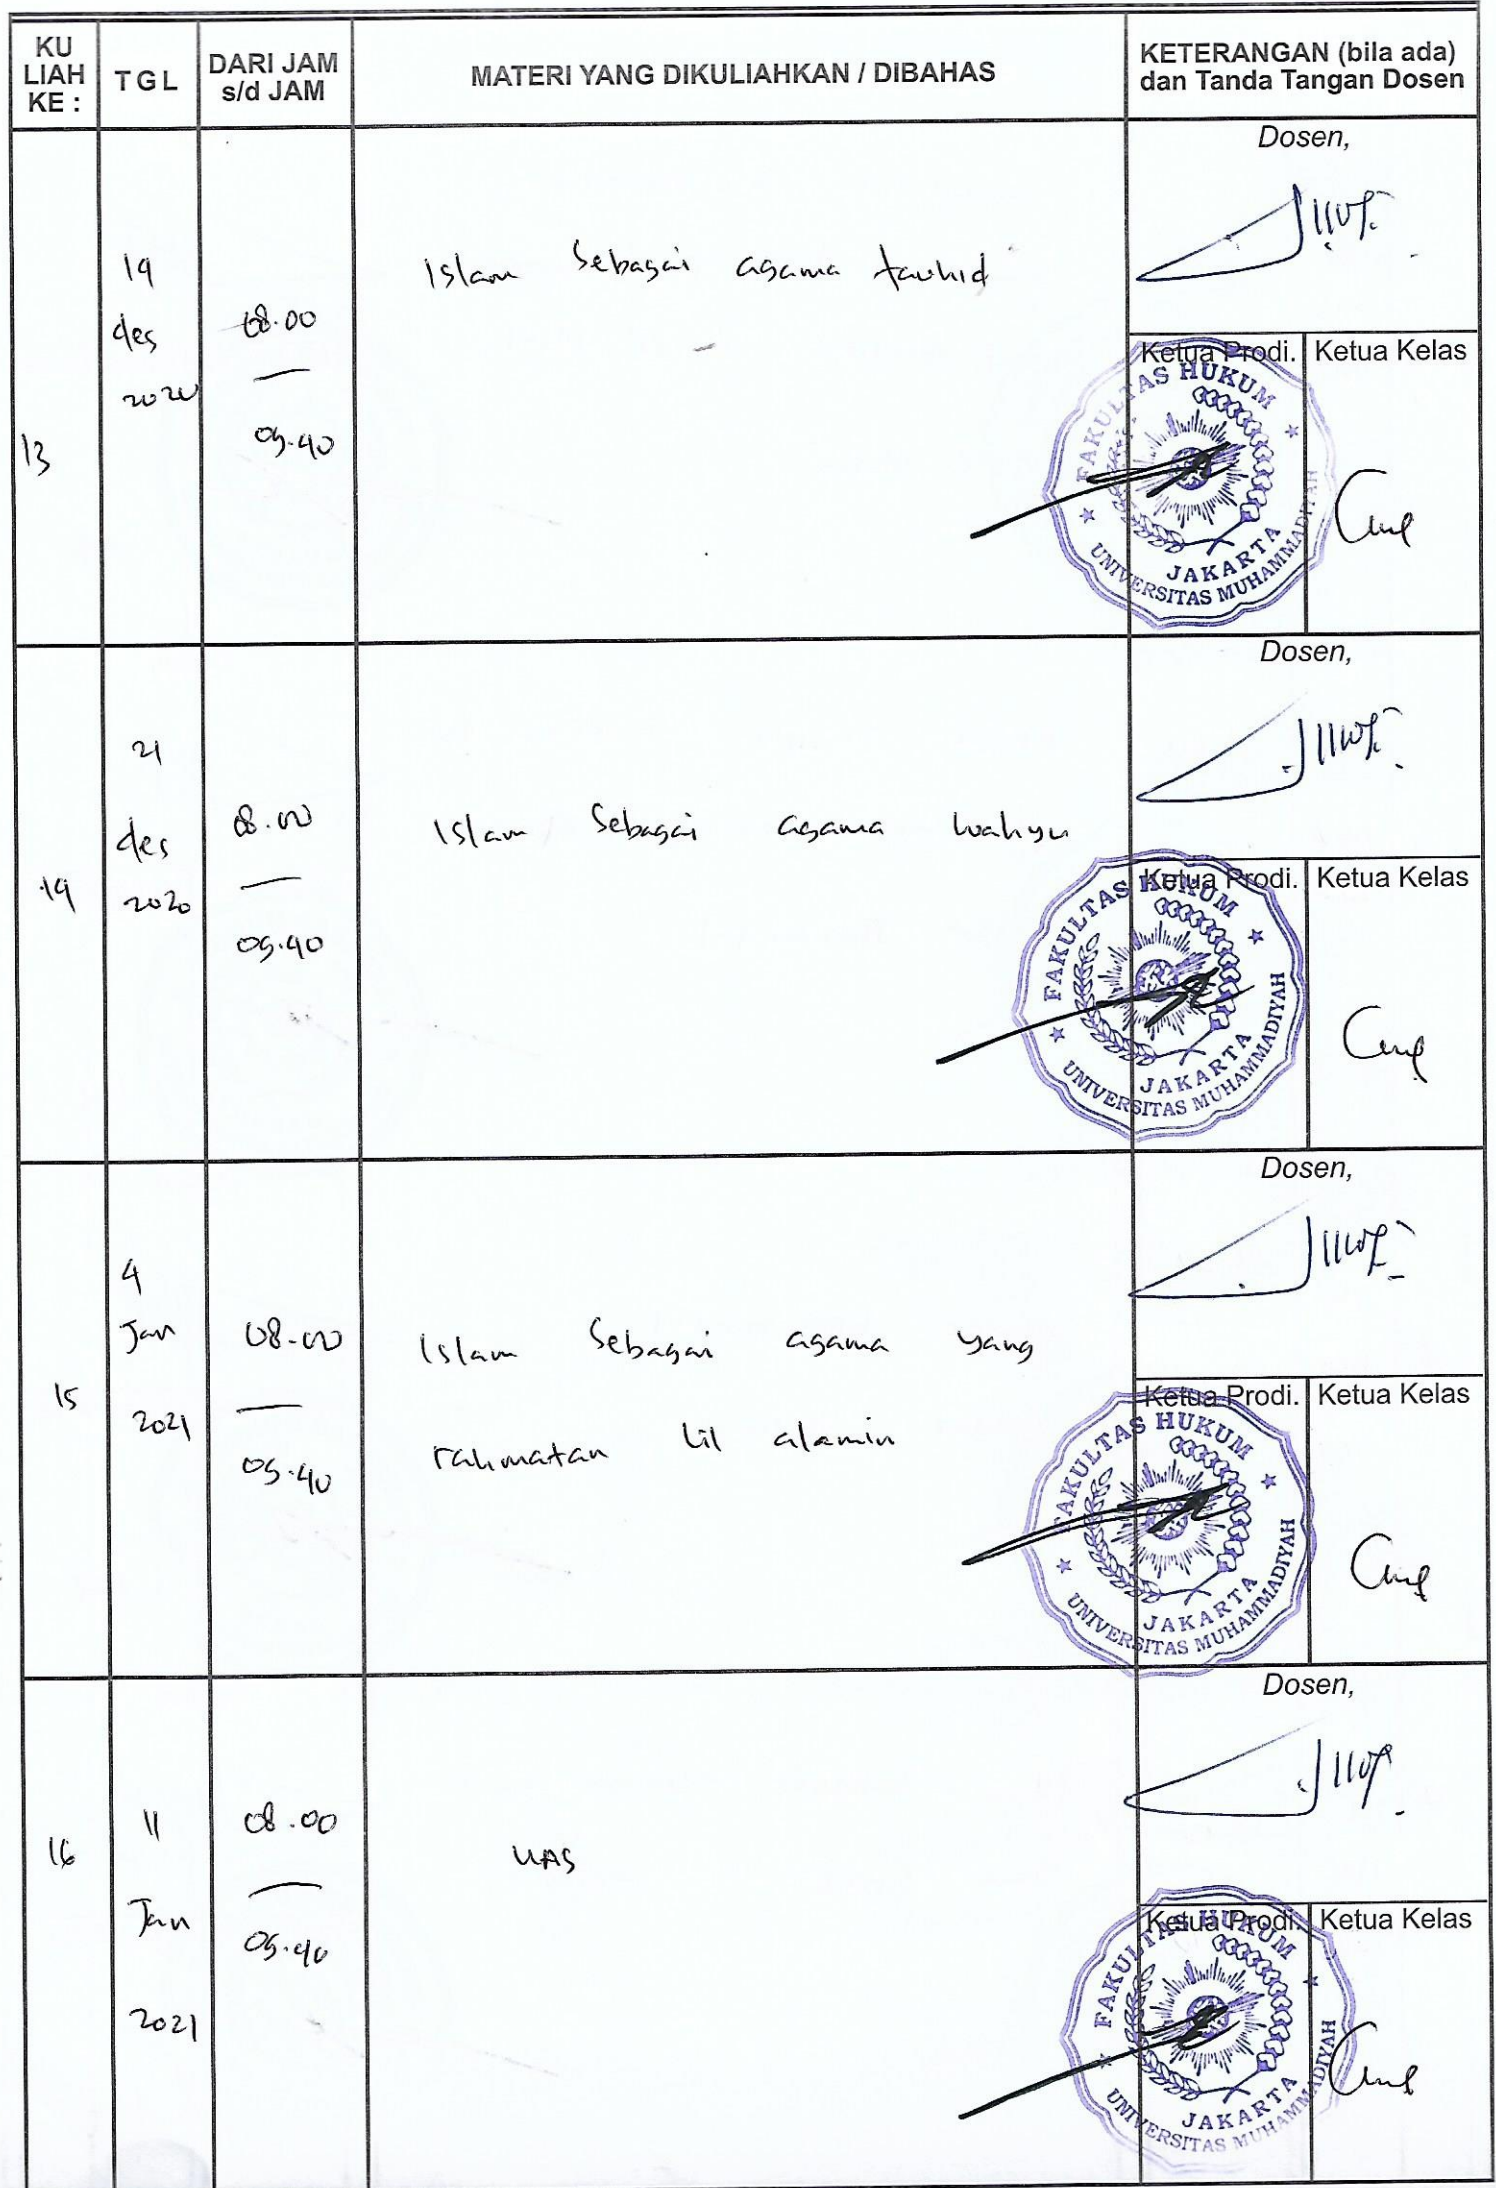 KU LIAH KE :
TGL
DARI JAM s/d JAM
MATERI YANG DIKULIAHKAN / DIBAHAS
KETERANGAN (bila ada) dan Tanda Tangan Dosen
13
14 des 2020
08.00 — 09.40
Islam Sebagai agama tauhid
Dosen,
Ketua Prodi.
Ketua Kelas
FAKULTAS HUKUM
JAKARTA
UNIVERSITAS MUHAMMADIYAH
14
21 des 2020
08.00 — 09.40
Islam Sebagai agama wahyu
Dosen,
Ketua Prodi.
Ketua Kelas
FAKULTAS HUKUM
JAKARTA
UNIVERSITAS MUHAMMADIYAH
15
4 Jan 2021
08.00 — 09.40
Islam Sebagai agama yang
rahmatan lil alamin
Dosen,
Ketua Prodi.
Ketua Kelas
FAKULTAS HUKUM
JAKARTA
UNIVERSITAS MUHAMMADIYAH
16
11 Jan 2021
08.00 — 09.40
UAS
Dosen,
Ketua Prodi.
Ketua Kelas
FAKULTAS HUKUM
JAKARTA
UNIVERSITAS MUHAMMADIYAH